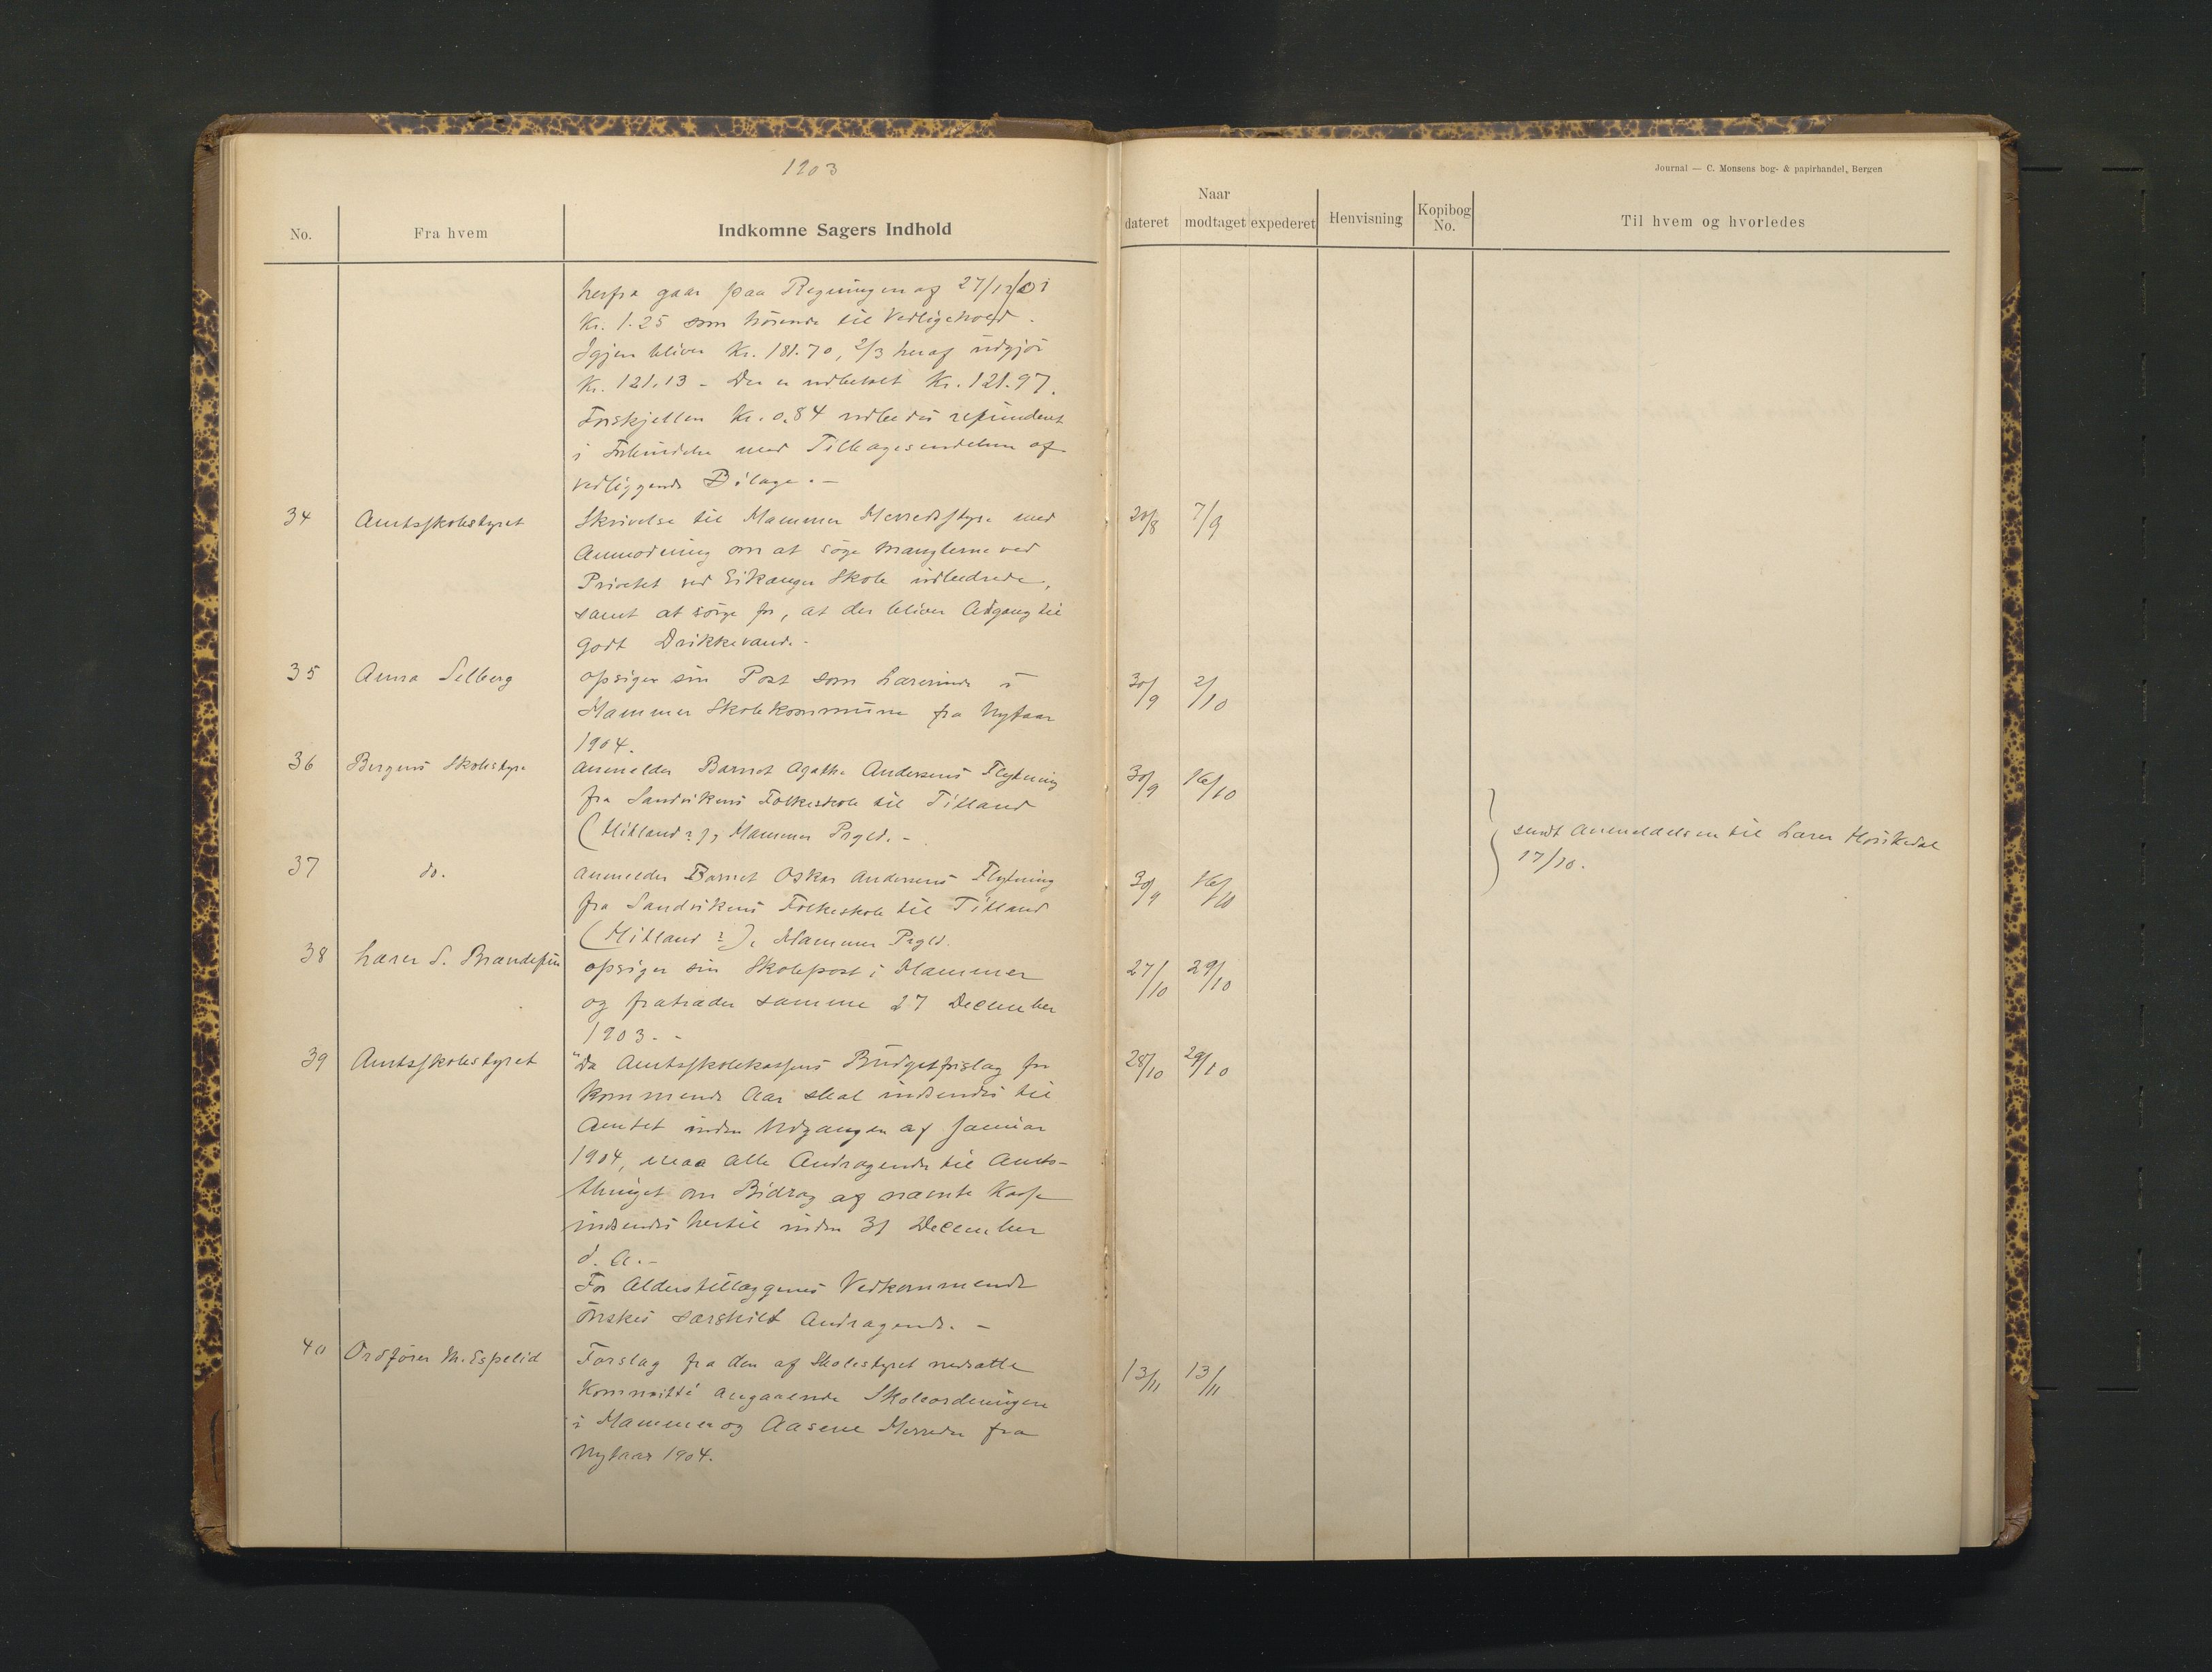 1903
Journal — C. Monsens bog- & papirhandel, Bergen
No. Fra hvem Indkomne Sagers Indhold Naar dateret modtaget expederet Henvisning Kopibog No. Til hvem og hvorledes
herfra gaar paa Regningen af 27/12/01
Kr. 1.25 som hörende til Vedligehold.
Igjen bliver Kr. 181.70, 2/3 heraf udgjör
Kr. 121.13 - Der er udbetalt Kr. 121.97.
Forskjellen Kr. 0.84 udbedes refunderet
i Forbindelse med Tilbagesendelsen af
vedliggende Bilage. -
34 Amtsskolestyret Skrivelse til Hammer Herredsstyre med 20/8 7/9
Anmodning om at söge Manglerne ved
Privetet ved Eikanger Skole udbedrede,
samt at sörge for, at der bliver Adgang til
godt Drikkevand. -
35 Anna Selberg opsiger sin Post som Lærerinde i 30/9 2/10
Hammer Skolekommune fra Nytaar
1904.
36 Bergens Skolestyre anmelder Barnet Agathe Andersens Flytning 30/9 16/10
fra Sandvikens Folkeskole til Tilland
(Hilland?), Hammer Prgld. -
sendt Anmeldelsen til Lærer Hösikedal
17/10.
37 do. anmelder Barnet Oskar Andersens Flytning 30/9 16/10
fra Sandvikens Folkeskole til Tilland
(Hilland?), Hammer Prgld.
38 Lærer S. opsiger sin Skolepost i Hammer 27/10 29/10
og fratræder samme 27 December
1903. -
39 Amtsskolestyret "Da Amtsskolekassens Budgetforslag for 28/10 29/10
kommende Aar skal indsendes til
Amtet inden Udgangen af Januar
1904, maa alle Andragender til Amts-
thinget om Bidrag af nævnte Kasse
indsendes hertil inden 31 December
d. A. -
For Alderstillæggenes Vedkommende
önskes særskilt Andragende. -
40 Ordförer M. Espelid Forslag fra den af Skolestyret nedsatte 13/11 13/11
Kommitté angaaende Skoleordningen
i Hammer og Aasene Herreder fra
Nytaar 1904.